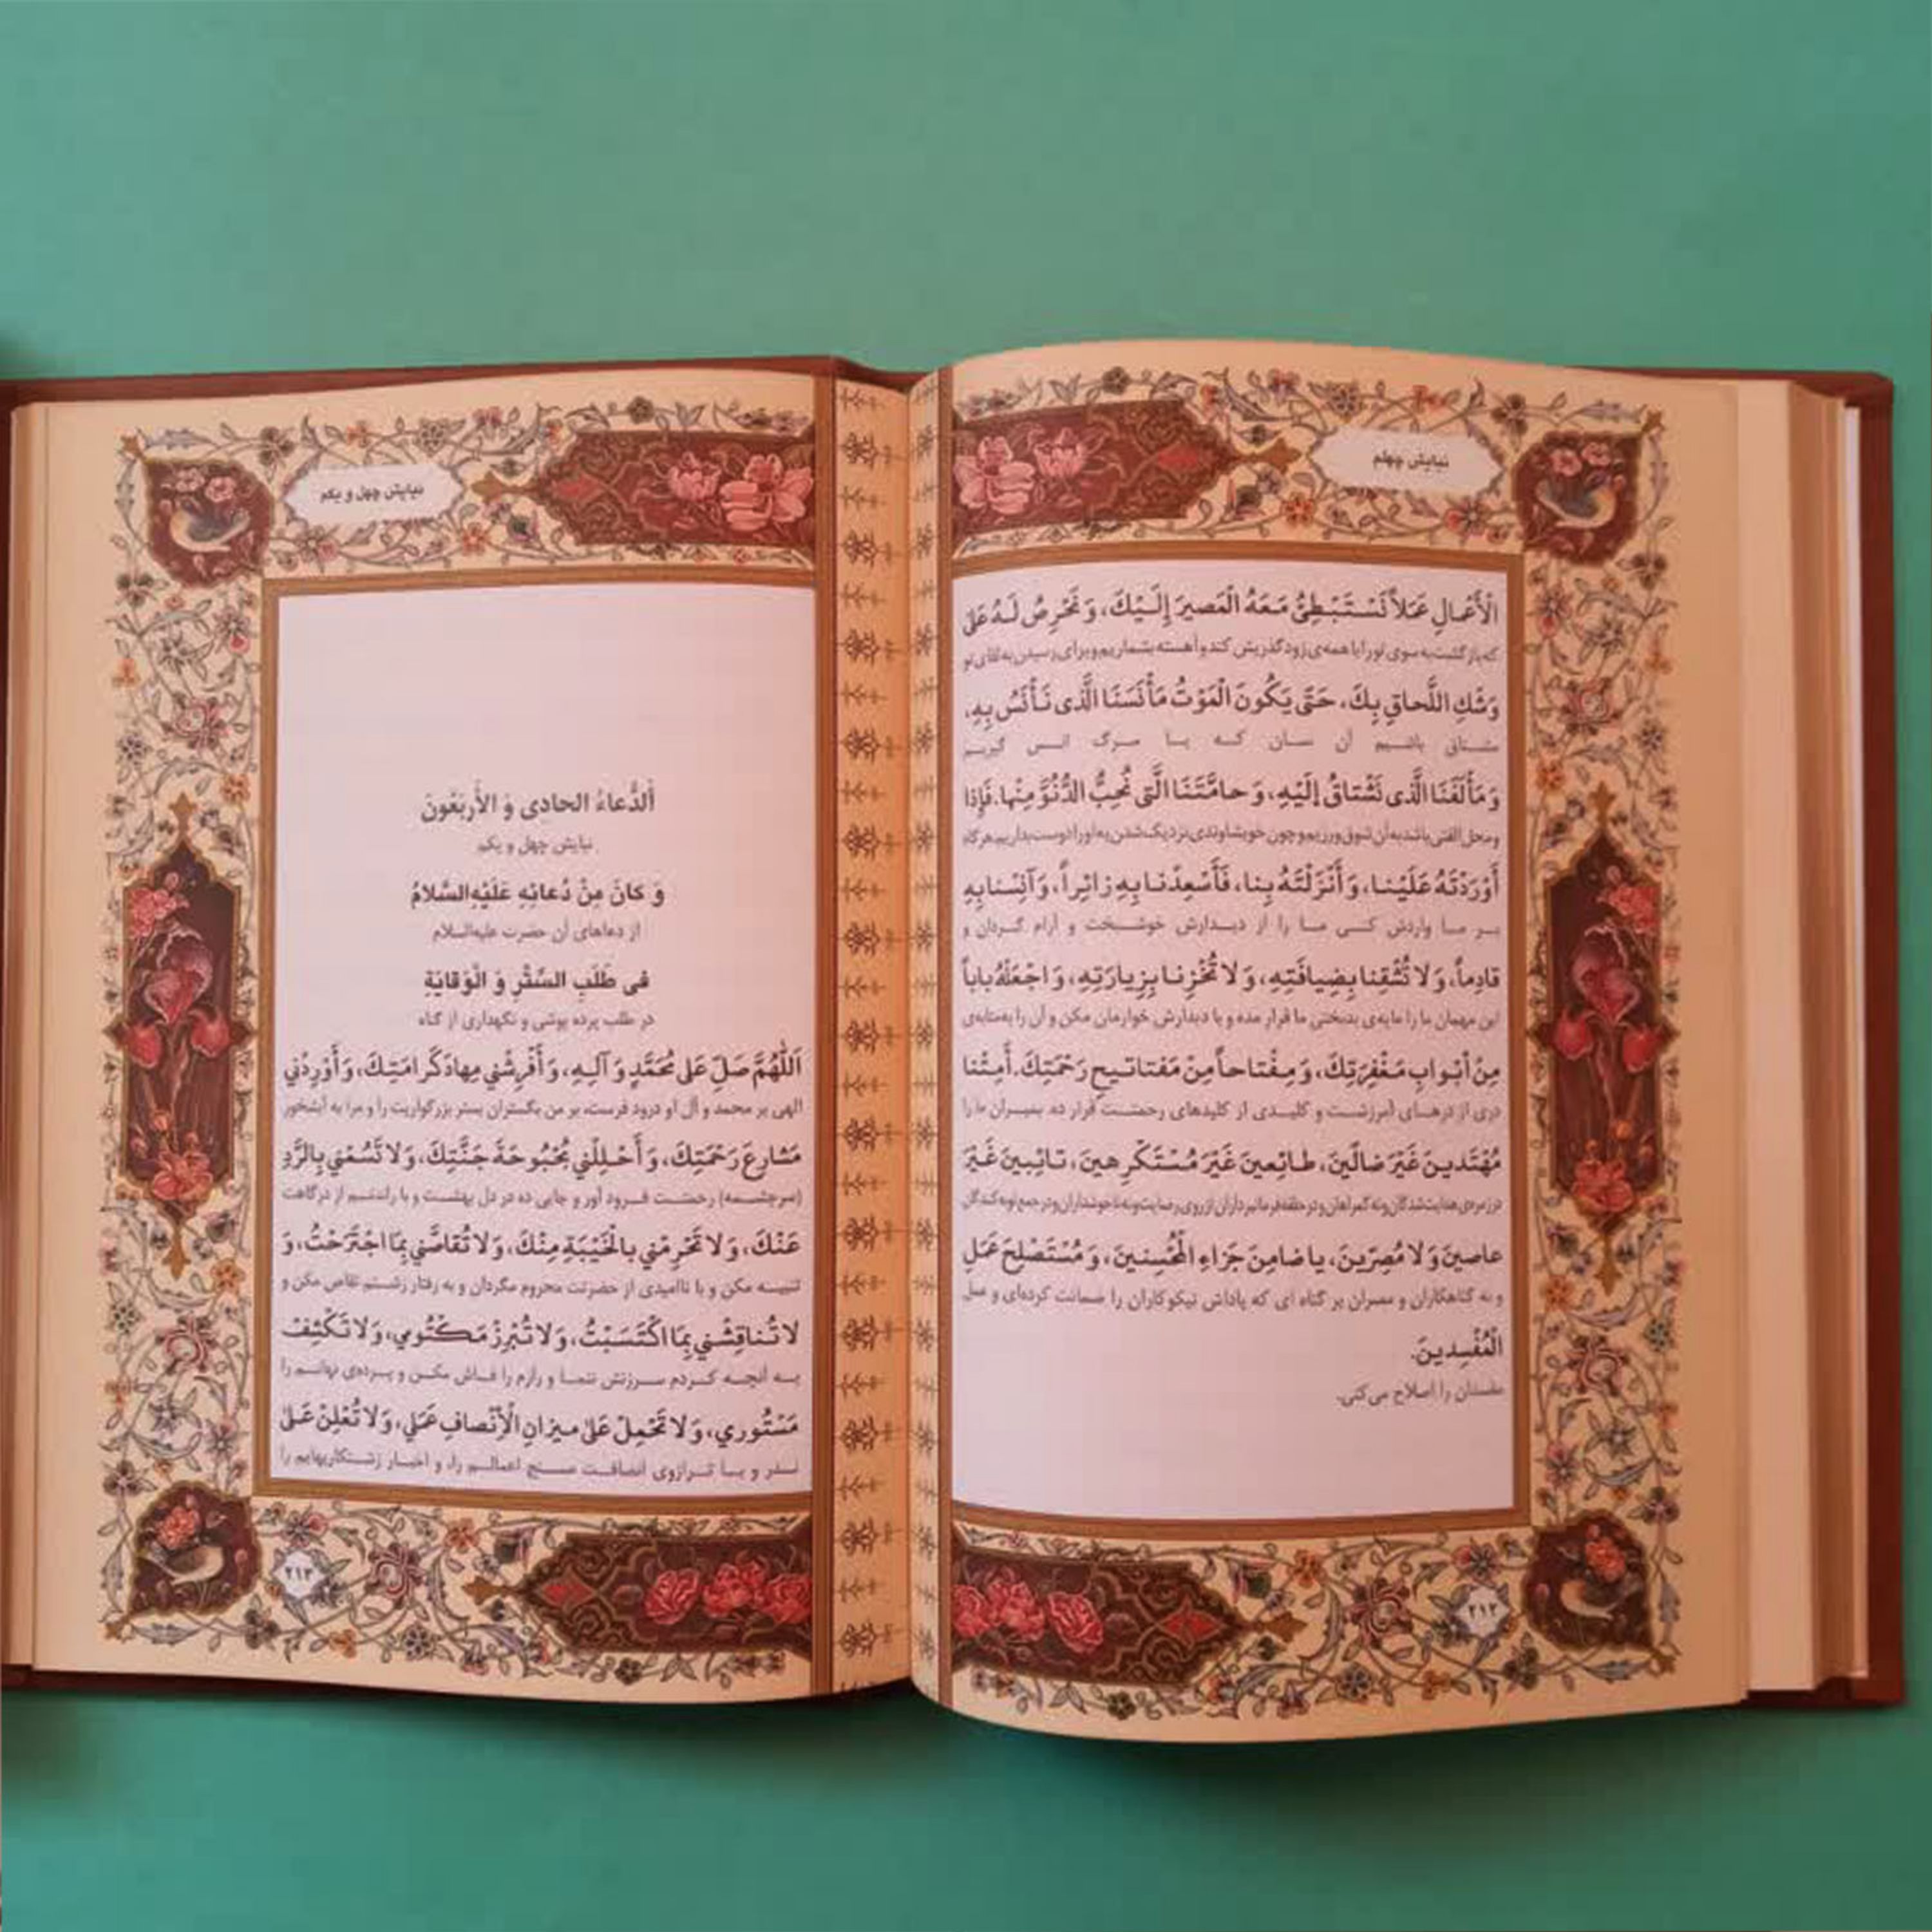 نیایش چهلم
الْأَعْمالِ عَمَلاً نَسْتَبْطِئُ مَعَهُ الْمَصیرَ إِلَیْكَ، وَ نَحْرِصُ لَهُ عَلیٰ
که بازگشت به سوی تو را با همه‌ی زودگذریش کند و آهسته بشماریم و برای رسیدن به لقای تو
وَشْكِ اللَّحاقِ بِكَ، حَتّیٰ یَكُونَ الْمَوْتُ مَأْنَسَنَا الَّذی نَأْنَسُ بِهِ،
مشتاق باشیم آن سان که با مرگ انس گیریم
وَ مَأْلَفَنَا الَّذی نَشْتاقُ إِلَیْهِ، وَ حامَّتَنَا الَّتی نُحِبُّ الدُّنُوَّ مِنْها. فَإِذا
و محل الفتی باشد به آن شوق ورزیم و چون خویشاوندی نزدیک شدن به او را دوست بداریم هرگاه
أَوْرَدْتَهُ عَلَیْنا، وَ أَنْزَلْتَهُ بِنا، فَأَسْعِدْنا بِهِ زائِراً، وَ آنِسْنا بِهِ
بر ما واردش کنی ما را از دیدارش خوشبخت و آرام گردان و
قادِماً، وَ لا تُشْقِنا بِضِیافَتِهِ، وَ لا تُخْزِنا بِزِیارَتِهِ، وَ اجْعَلْهُ باباً
این مهمان ما را مایه‌ی بدبختی ما قرار مده و با دیدارش خوارمان مکن و آن را به مثابه‌ی
مِنْ أَبْوابِ مَغْفِرَتِكَ، وَ مِفْتاحاً مِنْ مَفاتیحِ رَحْمَتِكَ. أَمِتْنا
دری از درهای آمرزشت و کلیدی از کلیدهای رحمتت قرار ده. بمیران ما را
مُهْتَدینَ غَیْرَ ضالّینَ، طائِعینَ غَیْرَ مُسْتَكْرِهینَ، تائِبینَ غَیْرَ
در زمره‌ی هدایت شدگان و نه گمراهان و در حلقه فرمانبرداران از روی رضایت و نه ناخوشداران و در جمع توبه کنندگان
عاصینَ وَ لا مُصِرّینَ، یا ضامِنَ جَزاءِ الْمُحْسِنینَ، وَ مُسْتَصْلِحَ عَمَلِ
و نه گناهکاران و مصران بر گناه ای که پاداش نیکوکاران را ضمانت کرده‌ای و عمل
الْمُفْسِدینَ.
مفسدان را اصلاح می‌کنی.
۲۱۲
نیایش چهل و یکم
أَلدُّعاءُ الحادِی وَ الأَربَعُونَ
نیایش چهل و یکم
وَ کَانَ مِنْ دُعائِهِ عَلَیْهِ‌السَّلامُ
از دعاهای آن حضرت علیه‌السلام
فی طَلَبِ السَّتْرِ وَ الْوَقایَةِ
در طلب پرده پوشی و نگهداری از گناه
اَللّٰهُمَّ صَلِّ عَلیٰ مُحَمَّدٍ وَ آلِهِ، وَ أَفْرِشْني مِهادَ كَرامَتِكَ، وَ أَوْرِدْني
الهی بر محمد و آل او درود فرست، بر من بگستران بستر بزرگواریت را و مرا به آبشخور
مَشارِعَ رَحْمَتِكَ، وَ أَحْلِلْني بُحْبُوحَةَ جَنَّتِكَ، وَ لا تَسُمْني بِالرَّدِّ
(سرچشمه) رحمتت فرود آور و جایی ده در دل بهشت و با راندنم از درگاهت
عَنْكَ، وَ لا تَحْرِمْني بِالْخَیْبَةِ مِنْكَ، وَ لا تُقاصَّني بِمَا اجْتَرَحْتُ، وَ
تنبیه مکن و با ناامیدی از حضرتت محروم مگردان و به رفتار زشتم تقاص مکن و
لا تُناقِشْني بِمَا اكْتَسَبْتُ، وَ لا تُبْرِزْ مَكْتُومي، وَ لا تَكْشِفْ
به آنچه کردم سرزنش ننما و رازم را فاش مکن و پرده‌ی نهانم را
مَسْتُوري، وَ لا تَحْمِلْ عَلیٰ میزانِ الْإِنْصافِ عَمَلي، وَ لا تُعْلِنْ عَلیٰ
ندر و با ترازوی انصافت مسنج اعمالم را، و اخبار زشتکاریهایم را
۲۱۳